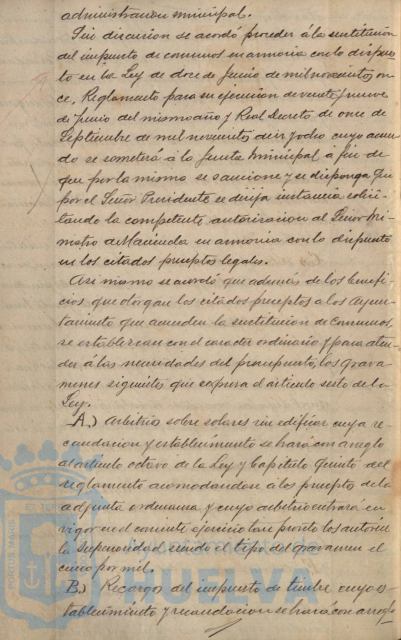 administracion municipal.
Sin discusion se acordó proceder á la sustitucion
del impuesto de consumos en armonia con lo dispues
to en la Ley de doce de Junio de mil novecientos on
ce, Reglamento para su ejecucion de veinte y nueve
de Junio del mismo año y Real Decreto de once de
Septiembre de mil novecientos diez y ocho cuyo acuer
do se someterá á la Junta Municipal á fin de
que por la misma se sancione y se disponga que
por el Señor Presidente se dirija instancia solici
tando la competente autorizacion al Señor Mi
nistro de Hacienda en armonia con lo dispuesto
en los citados preceptos legales.
Asi mismo se acordó que además de los benefi
cios que otorgan los citados preceptos a los Ayun
tamientos que acuerden la sustitucion de consumos,
se establezcan con el caracter ordinario y para aten
der á las necesidades del presupuesto, los grava
menes siguientes que expresa el articulo sexto de la
Ley.
A.) Arbitrios sobre solares sin edificar cuya re
caudacion y establecimiento se hará con arreglo
al articulo octavo de la Ley y Capitulo quinto del
reglamento acomodandose á los preceptos de la
adjunta ordenanza y cuyo arbitrio entrará en
vigor en el corriente ejercicio tan pronto lo autorice
la Superioridad siendo el tipo del gravamen el
cinco por mil.
B.) Recargo del impuesto de timbre cuyo es
tablecimiento y recaudacion se hará con arreglo
PORTUS MARIS
Ayuntamiento de
HUELVA